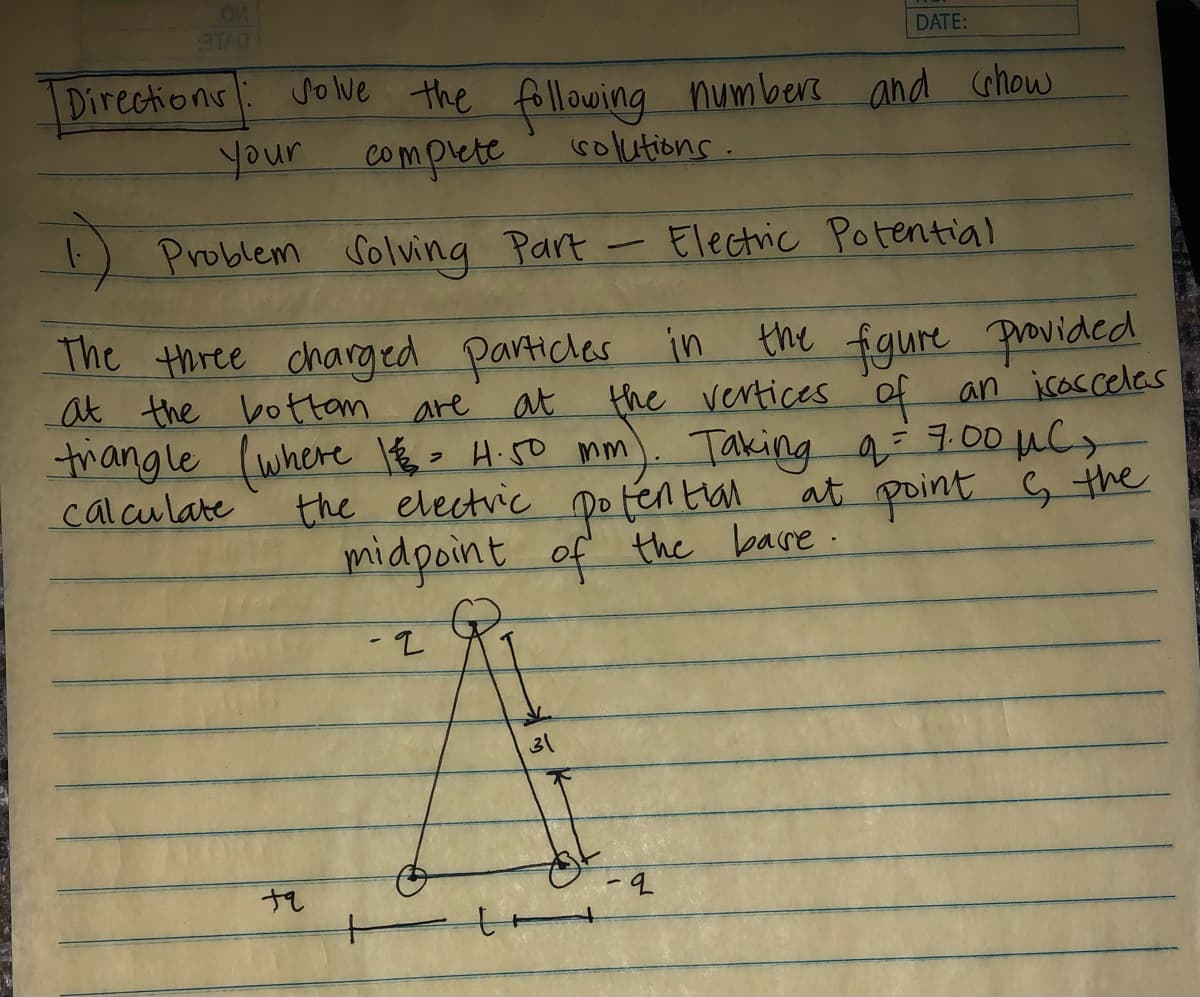 DATE:
Directions: Solve the following numbers and show
your complete solutions.
1.) Problem Solving Part - Electric Potential
The three charged particles in the figure provided
at the bottom are at the vertices of an isosceles
triangle (where l = 4.50 mm). Taking q = 7.00 μC,
calculate the electric potential at point the
midpoint of the base.
-q
3l
+q
-q
l